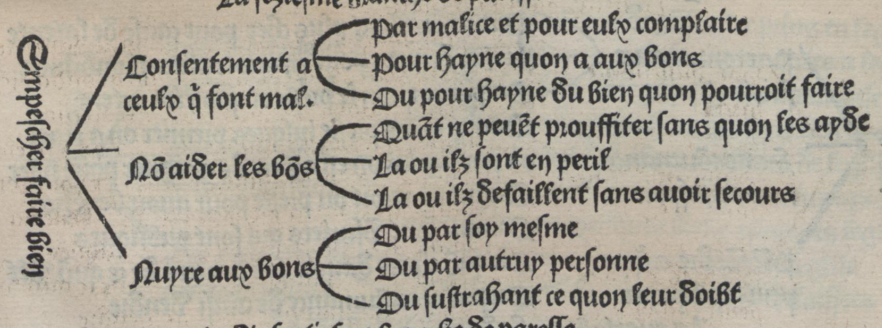 Empeſcher faire bien
Conſentement a
ceulx q̃ font mal.
Par malice et pour eulx complaire
Pour hayne quon a aux bons
Ou pour hayne du bien quon pourroit faire
Nõ aider les bõs
Quãt ne peuẽt prouffiter ſans quon les ayde
La ou ilz ſont en peril
La ou ilz defaillent ſans auoir ſecours
Nuyre aux bons
Ou par ſoy meſme
Ou par autruy perſonne
Ou ſuſtrahant ce quon leur doibt